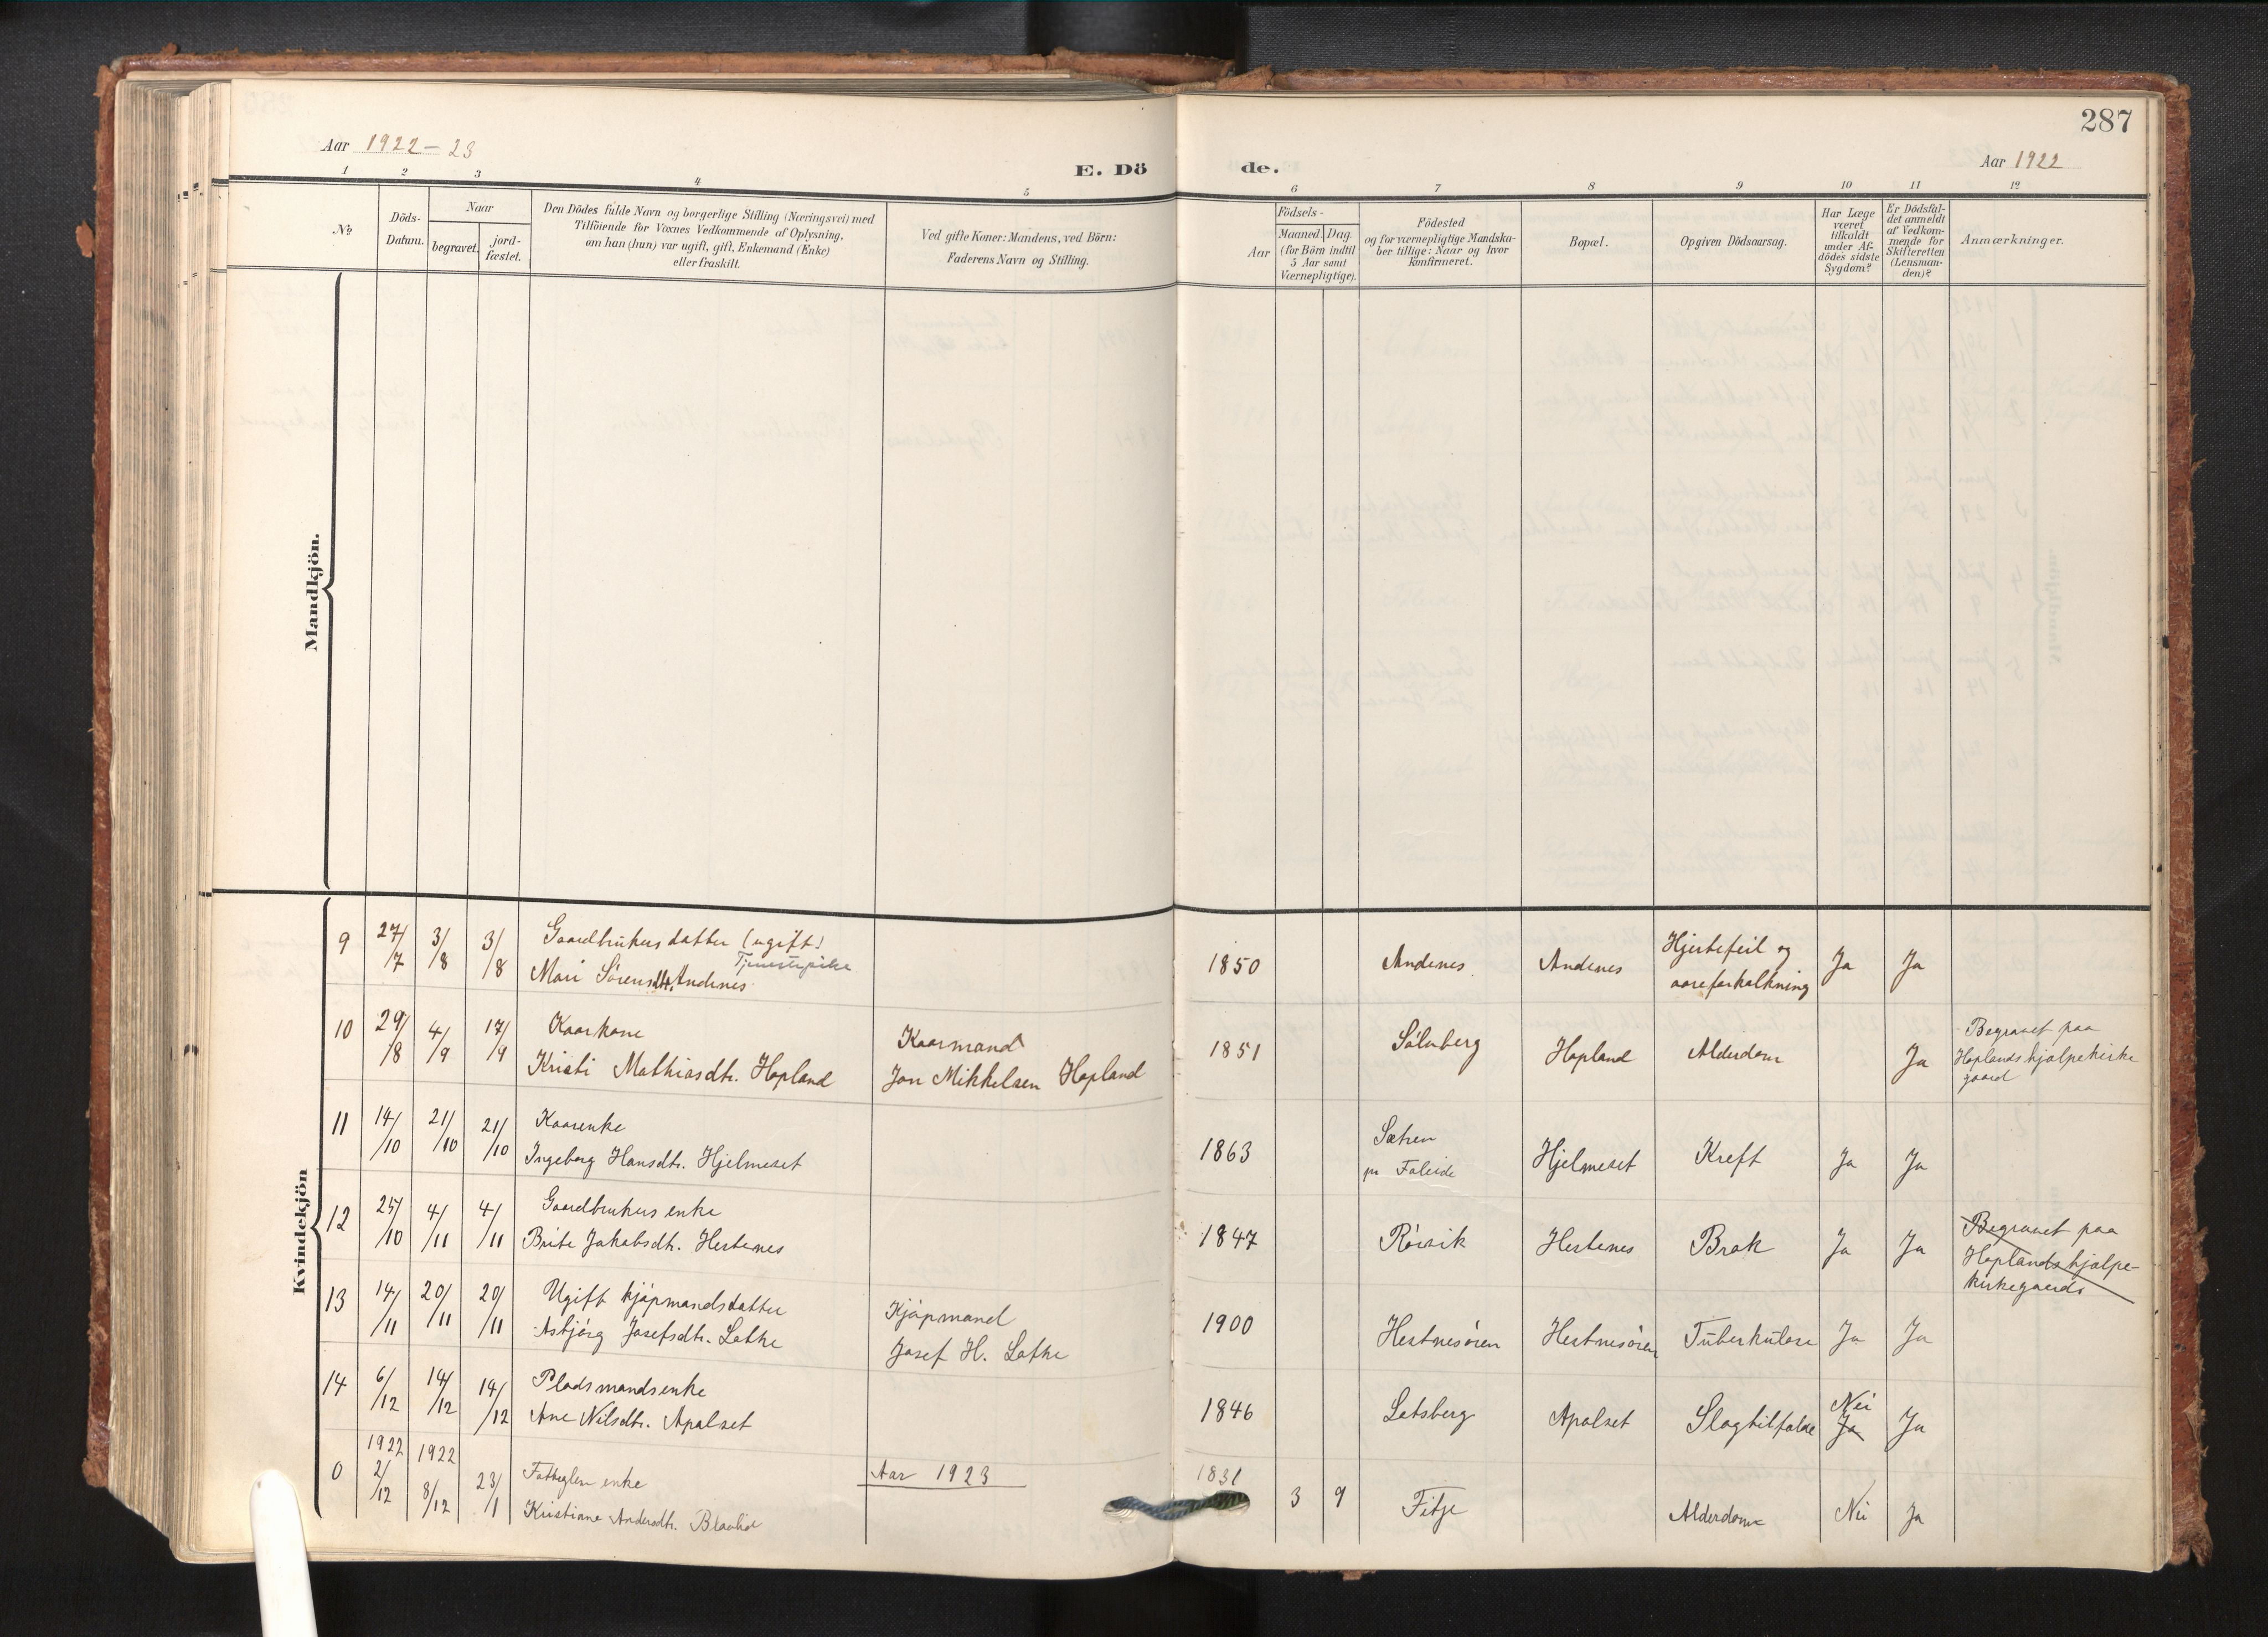 287
Aar 1922 - 23
E. Dö
de.
Aar 1922
1 2 3 4 5 6 7 8 9 10 11 12
№
Döds-
Datum.
Naar
begravet.
jord-
fæstet.
Den Dödes fulde Navn og borgerlige Stilling (Næringsvei) med
Tilföiende for Voxnes Vedkommende af Oplysning,
om han (hun) var ugift, gift, Enkemand (Enke)
eller fraskilt.
Ved gifte Koner: Mandens, ved Börn:
Faderens Navn og Stilling.
Födsels-
Aar
Maaned. Dag.
(for Börn indtil
5 Aar samt
Værnepligtige).
Födested
og for værnepligtige Mandska-
ber tillige: Naar og hvor
konfirmeret.
Bopæl.
Opgiven Dödsaarsag.
Har Læge
været
tilkaldt
under Af-
dödes sidste
Sygdom?
Er Dödsfal-
det anmeldt
af Vedkom-
mende for
Skifteretten
(Lensman-
den)?
Anmærkninger.
Mandkjön.
Kvindekjön
9 27/7 3/8 3/8 Gaardbrukersdatter (ugift)
Tjenestepike
Mari Sørensdtr. Andenes
1850 Andenes Andenes Hjertefeil og
aareforkalkning Ja Ja
10 29/8 4/9 17/9 Kaarkone
Kristi Mathiasdtr. Hopland
Kaarmand
Jon Mikkelsen Hopland
1851 Sølvberg Hopland Alderdom Ja
Begravet paa
Hoplands hjælpekirke
gaard
11 14/10 21/10 21/10 Kaarenke
Ingeborg Hansdtr. Hjelmeset
1863 Sætren
pr Faleide Hjelmeset Kreft Ja Ja
12 25/10 4/11 4/11 Gaardbrukers enke
Brite Jakobsdtr. Hestenes
1847 Rõisik Hestenes Brok Ja Ja
Begravet paa
Hoplands hjælpe-
kirkegaards
13 14/11 20/11 20/11 Ugift kjøpmandsdatter
Asbjørg Josefsdtr. Lothe
Kjøpmand
Josef H. Lothe
1900 Hestnesøren Hestnesøren Tuberkulose Ja Ja
14 6/12 14/12 14/12 Pladsmandsenke
Ane Nilsdtr. Apalset
1846 Lotsberg Apalset Slagtilfælde Nei
Ja Ja
1922 1922
0 2/12 8/12 23/1 Fattiglem enke
Kristiane Andersdtr. Blaalid
Aar 1923
1831 3 9 Fitje Alderdom Nei Ja